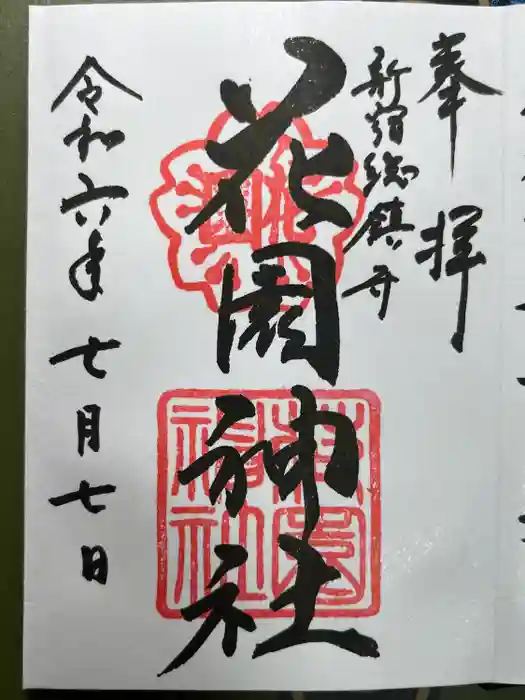 奉拝
新宿総鎮守
花園神社
令和六年七月七日